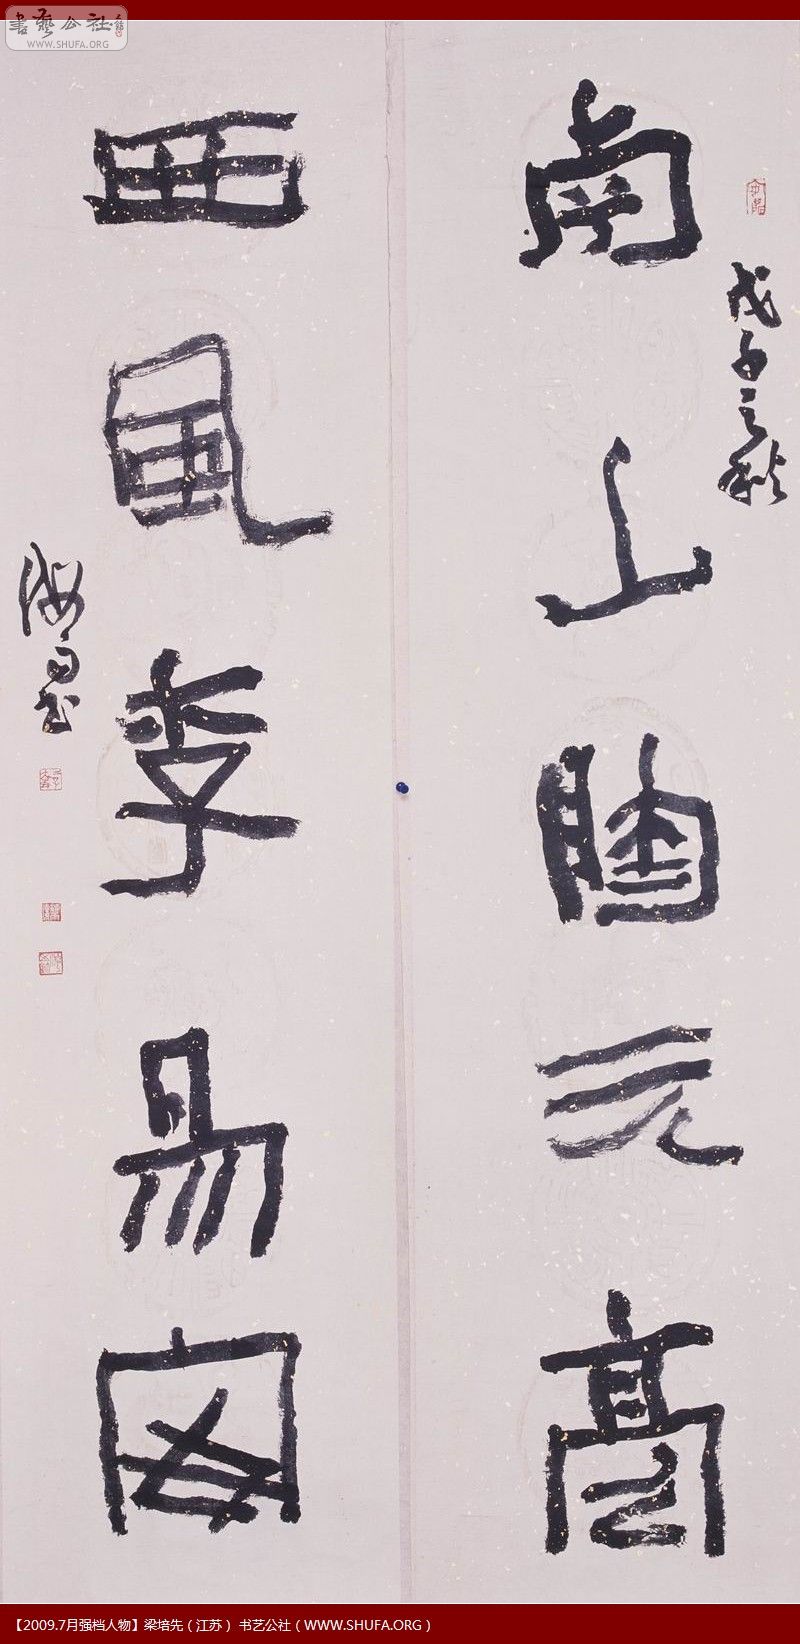 書藝公社
WWW.SHUFA.ORG
南山陶元亮
西風李易安
戊子之秋
【2009.7月强档人物】梁培先（江苏） 书艺公社（WWW.SHUFA.ORG）